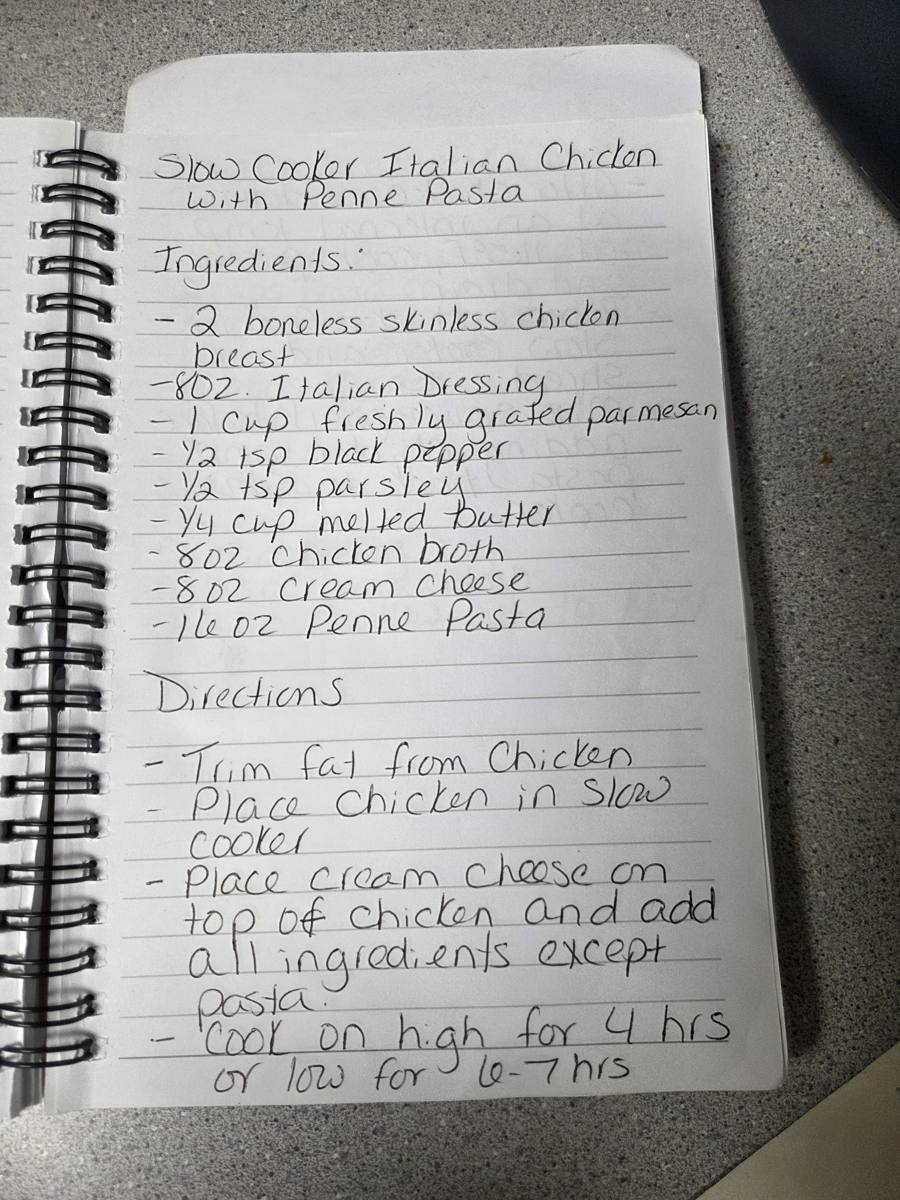 Slow Cooker Italian Chicken
with Penne Pasta
Ingredients:
- 2 boneless skinless chicken
breast
- 8oz. Italian Dressing
- 1 cup freshly grated parmesan
- 1/2 tsp black pepper
- 1/2 tsp parsley
- 1/4 cup melted butter
- 8oz chicken broth
- 8oz cream cheese
- 16oz Penne Pasta
Directions
- Trim fat from Chicken
- Place chicken in slow
cooker
- Place cream cheese on
top of chicken and add
all ingredients except
pasta.
- Cook on high for 4 hrs
or low for 6-7 hrs